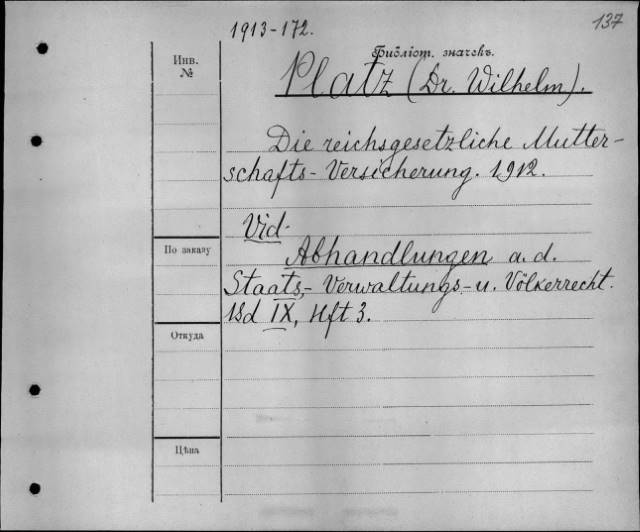 137
1913-172.
Библіот. значекъ.
Инв.
№
Platz (Dr. Wilhelm).
Die reichsgesetzliche Mutter-
schafts-Versicherung. 1912.
Vid.
По заказу
Abhandlungen a. d.
Staats,- Verwaltungs- u. Völkerrecht.
Bd IX, Hft 3.
Откуда
Цѣна